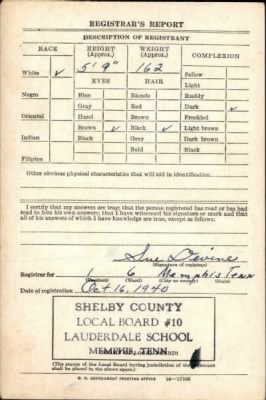 REGISTRAR'S REPORT
DESCRIPTION OF REGISTRANT
RACE HEIGHT (Approx.) WEIGHT (Approx.) COMPLEXION
White ✓ 5' 9" 162 Sallow
EYES HAIR Light
Negro Blue Blonde Ruddy
Gray Red Dark ✓
Oriental Hazel Brown Freckled
Brown ✓ Black ✓ Light brown
Indian Black Gray Dark brown
Bald Black
Filipino
Other obvious physical characteristics that will aid in identification
I certify that my answers are true; that the person registered has read or has had
read to him his own answers; that I have witnessed his signature or mark and that
all of his answers of which I have knowledge are true, except as follows:
Sue Devine
(Signature of registrar)
Registrar for 1 6 Memphis Tenn
(Precinct) (Ward) (City or county) (State)
Date of registration Oct 16, 1940
SHELBY COUNTY
LOCAL BOARD #10
LAUDERDALE SCHOOL
MEMPHIS, TENN
(The stamp of the Local Board having jurisdiction of the registrant
shall be placed in the above space.)
U. S. GOVERNMENT PRINTING OFFICE 16—17105